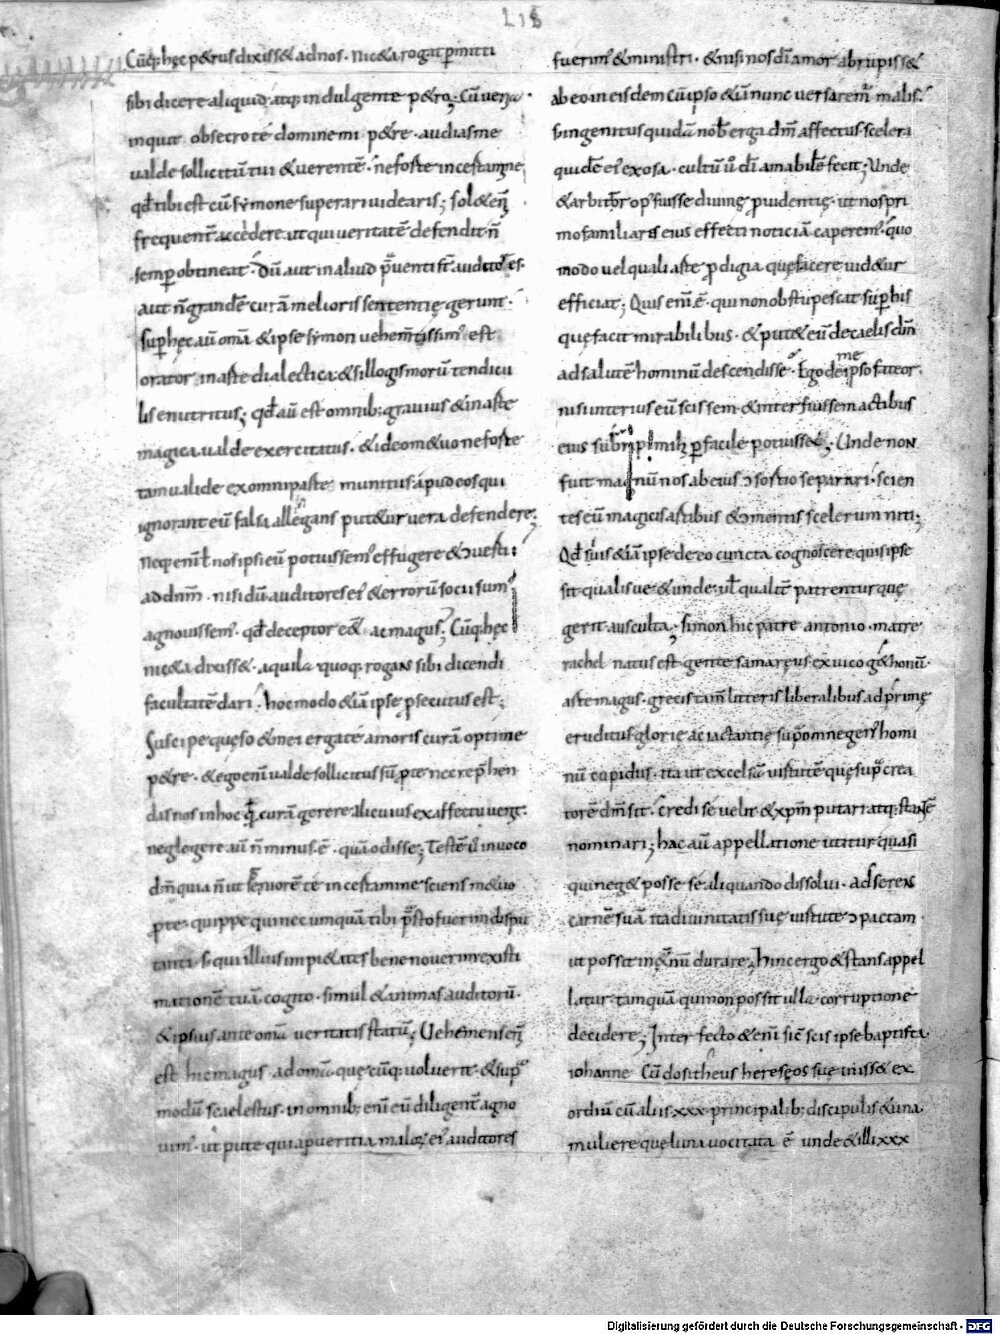 LIB
Cūq; hęc p&rus dixiss& ad nos. nic&a rogat p̄mitti
sibi dicere aliquid. atq; indulgente p&ro; Cū venia
inquit obsecro te domine mi p&re. audias me
valde sollicitū tui & verentē. ne forte in certamine
qd̄ tibi est cū symone superari videaris; sol& eni
frequenter accedere. ut qui veritatē defendit n̄
semp obtineat. Dū aut in aliud p̄venti st̄ auditores.
aut n̄ grandē curā melioris sententię gerunt.
sup hęc aū om̄a & ipse symon vehem̄tissim' est
orator. in arte dialectica & sillogismorū tendicu
lis enutritus; qd̄ aū est omnib; gravius & in arte
magica valde exercitatus. & ideo m&uo ne forte
tam valide ex omni parte munitus apud eos qui
ignorant eū falsa allegans put&ur vera defendere;
Neq; eni nos ipsi eū potuissem' effugere & converti
ad dn̄m. nisi dū auditores ei' & errorū socii sum'
agnovissem'. qd̄ deceptor e& ac magus; Cūq; hęc
nic&a dixiss&. aquila quoq; rogans sibi dicendi
facultatē dari. hoc modo & iā ipse p̄secutus est;
Suscipe quęso & mei erga te amoris curā optime
p&re. & ego eni valde sollicitus sū p̄ te nec rep̄hen
das nos in hoc q̄ curā gerere alicuius ex affectu venit.
neglegere aū n̄ minus .ē. quā odisse; Testē ū invoco
dm̄ quia n̄ ut seniorē te in certamine sciens m&uo
p̄ te. quippe qui nec umquā tibi p̄sto fuerim dispu
tanti. s; qui illius impi&ates bene noverim existi
mationē tuā cogito. simul & animas auditorū.
& ipsius ante om̄a veritatis statū; Vehemens eni
est hic magus. ad om̄a quę cūq; voluerit. & sup
modū scaelestus. in omnib; eni eū diligent̄ agno
vim'. ut pute qui a pueritia malorū ei' auditores
fuerim' & ministri. & nisi nos dī amor abrupiss&
ab eo in eisdem cū ipso & iā nunc versaremur malis.
s; ingenitus quidā nob̄ erga dm̄ affectus scelera
quidē ei' exosa. cultū ū dī amabilē fecit; Unde
& arbitror op' fuisse divinę providentię. ut nos pri
mo familiares eius effecti noticiā caperem'. quo
modo vel quali arte prodigia quę facere vid&ur
efficiat; Quis eni .ē. qui non obstupescat sup his
quę facit mirabilibus. & put& eū de caelis dm̄
ad salutē hominū descendisse. Ego de me ipso fateor.
nisi interius eū scissem & interfuissem actibus
eius subripi mih p̄ facile potuisse; Unde non
fuit magnū nos ab eius consortio separari. scien
tes eū magicis artibus & commentis scelerum niti;
Qd̄ si vis & iā ipse de eo cuncta cognoscere quis ipse
sit qualisve & unde. vel qualit̄ patrentur quę
gerit. ausculta; Simon hic patre antonio. matre
rachel natus est gente samareus ex vico g&honū.
arte magus. grecis tam litteris liberalibus adprimę
eruditus. glorie ac iactantię sup omne gen' homi
nū cupidus. ita ut excelsā virtutē quę sup crea
torē dm̄ sit. credi se velit & xpm̄ putari atq; stante
nominari; hac aū appellatione utitur quasi
qui neg& posse se aliquando dissolvi. adserens
carnē suā ita divinitatis suę virtute conpactam
ut possit in &nū durare; hinc ergo & stans appel
latur tamquā qui non possit ulla corruptione
decidere; Interfecto & eni sic scis ipse baptista
iohanne Cū dositheus heresęos suę iniss& ex
ordiū cū aliis .xxx. principalib; discipulis & una
muliere quę luna vocitata ē unde & illi xxx
Digitalisierung gefördert durch die Deutsche Forschungsgemeinschaft - DFG